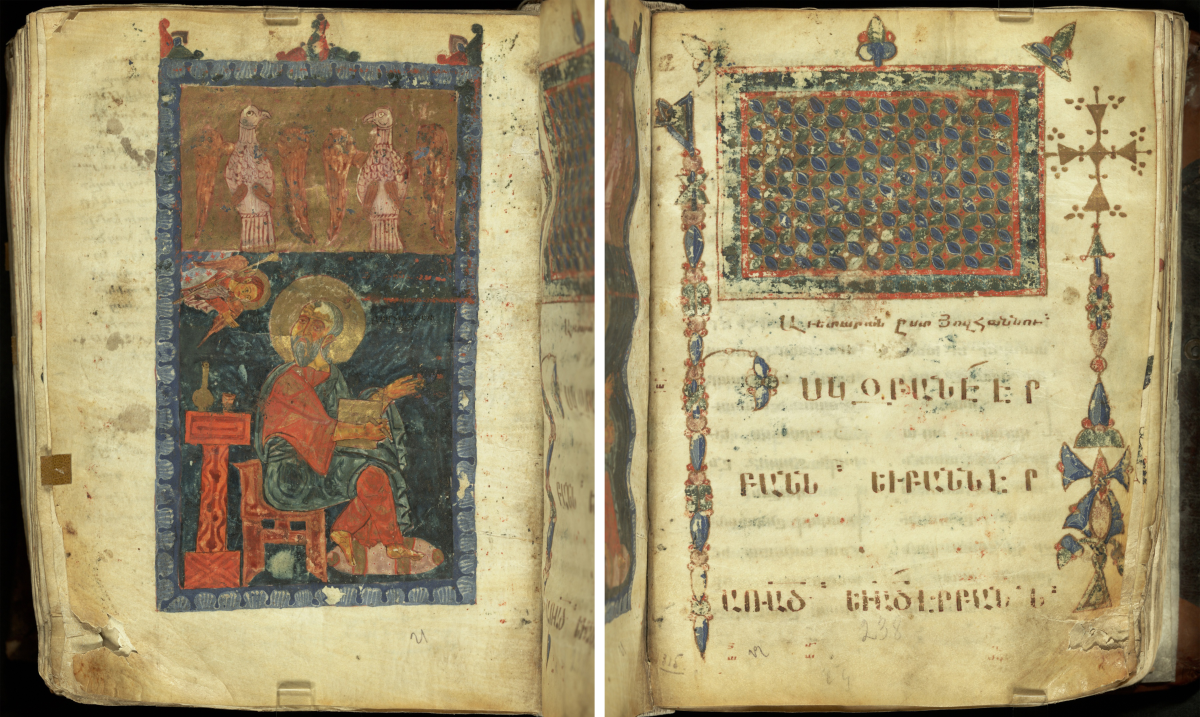 Աւետարան ըստ Յովհաննու։
Ի ՍԿԶԲԱՆԷ ԷՐ
ԲԱՆՆ՝ ԵՒ ԲԱՆՆ ԷՐ
ԱՌ ԱԾ՝ ԵՒ ԱԾ ԷՐ ԲԱՆՆ։
238